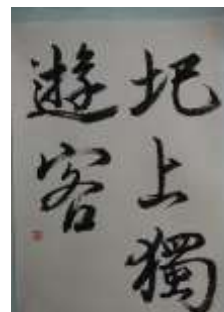 圯上獨
遊客